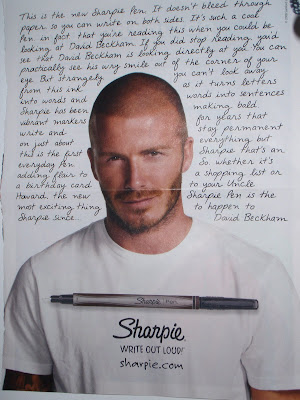 This is the new Sharpie Pen. It doesn't bleed through
paper so you can write on both sides. It's such a cool
Pen in fact that you're reading this when you could be
looking at David Beckham. If you did stop reading, you'd
see that David Beckham is looking directly at you. You can
practically see his wry smile out of the corner of your
eye. But strangely you can't look away
from this ink as it turns letters
into words and words into sentences
Sharpie has been making bold
vibrant markers for years that
write and stay permanent
on just about everything but
this is the first Sharpie that's an
everyday Pen So whether it's
adding flair to a shopping list or
a birthday card to your Uncle
Howard, the new Sharpie Pen is the
most exciting thing to happen to
Sharpie since... David Beckham
Sharpie Pen
Sharpie.
WRITE OUT LOUD!
sharpie.com